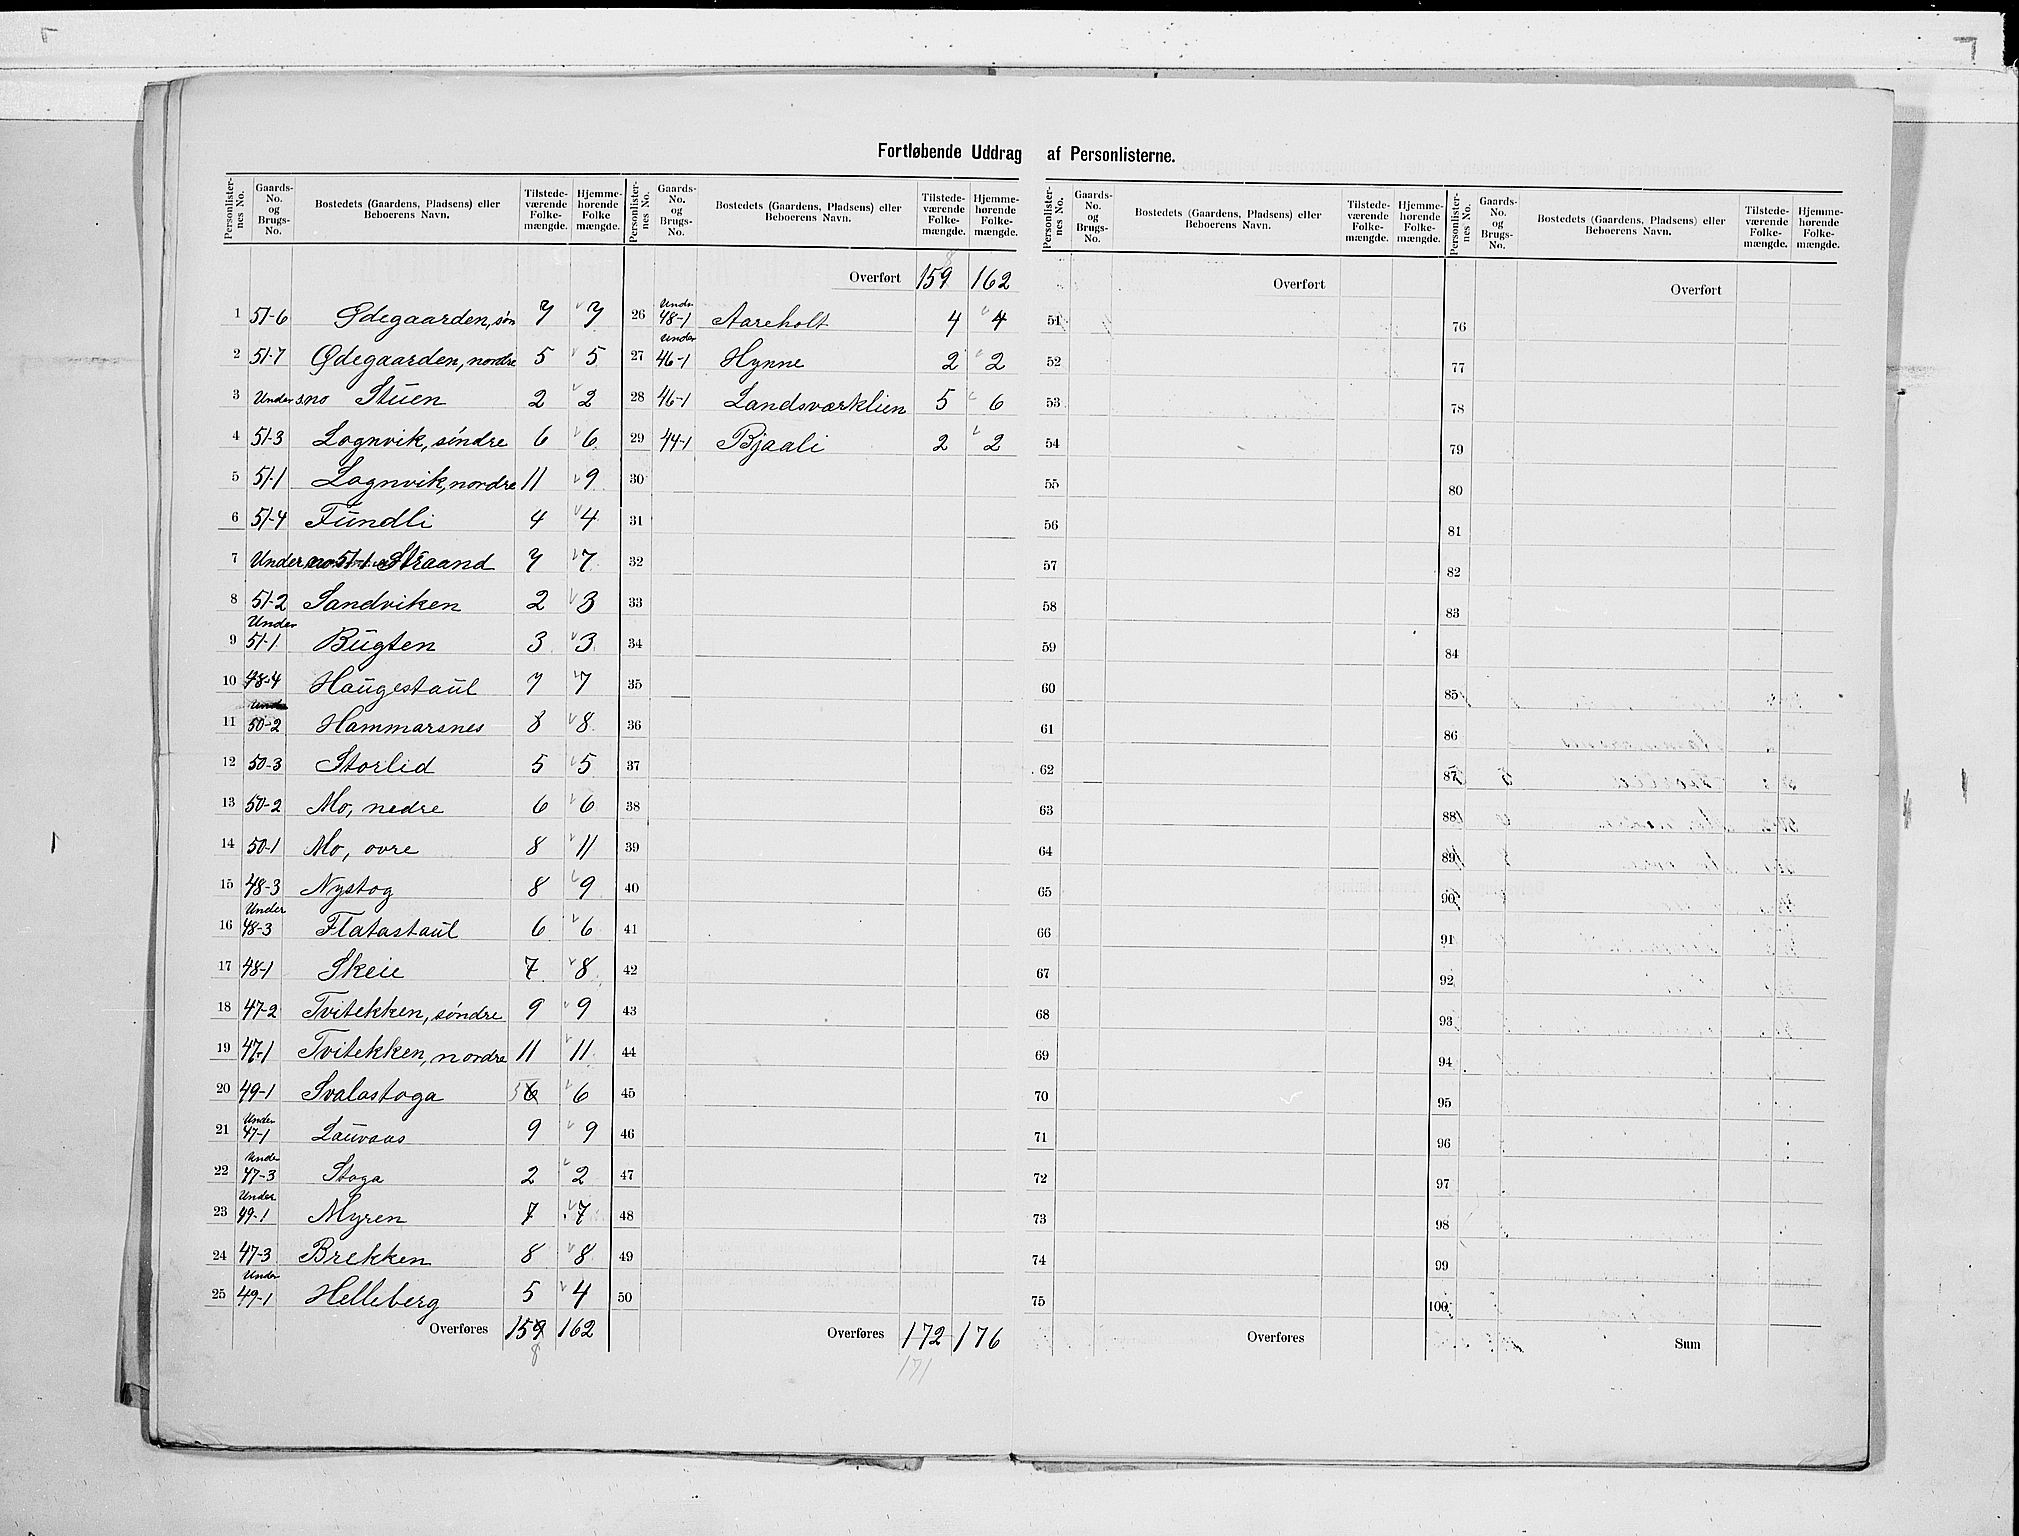 Fortløbende Uddrag af Personlisterne.
Personlister-nes No. | Gaards-No. og Brugs-No. | Bostedets (Gaardens, Pladsens) eller Beboerens Navn. | Tilstede-værende Folke-mængde. | Hjemme-hørende Folke mængde.
1 51-6 Ødegaarden, søn 7 7
2 51-7 Ødegaarden, nordre 5 5
3 Under 3.no Stuen 2 2
4 51-3 Lognvik, söndre 6 6
5 51-1 Lognvik, nordre 11 9
6 51-4 Fundli 4 4
7 Under no 51-1 Straand 7 7
8 51-2 Sandviken 2 3
9 Under 51-1 Bugten 3 3
10 48-4 Haugestaul 7 7
11 Under 50-2 Hammarsnes 8 8
12 50-3 Storlid 5 5
13 50-2 Mo, nedre 6 6
14 50-1 Mo, ovre 8 11
15 48-3 Nystog 8 9
16 Under 48-3 Flatastaul 6 6
17 48-1 Skeie 7 8
18 47-2 Tvitekken, söndre 9 9
19 47-1 Tvitekken, nordre 11 11
20 49-1 Svalastoga 5 6 6
21 Under 47-1 Lauvaas 9 9
22 Unde 47-3 Stoga 2 2
23 Under 49-1 Myren 7 7
24 47-3 Brekken 8 8
25 Under 49-1 Helleberg 5 4
Overføres 159 162
8
Personlister-nes No. | Gaards-No. og Brugs-No. | Bostedets (Gaardens, Pladsens) eller Beboerens Navn. | Tilstede-værende Folke-mængde. | Hjemme-hørende Folke-mængde.
8
Overført 159 162
26 Undr 48-1 Aareholt 4 4
27 Under 46-1 Hynne 2 2
28 46-1 Landsværklien 5 6
29 44-1 Bjaali 2 2
30
31
32
33
34
35
36
37
38
39
40
41
42
43
44
45
46
47
48
49
50
Overføres 172 176
171
Personlister-nes No. | Gaards-No. og Brugs-No. | Bostedets (Gaardens, Pladsens) eller Beboerens Navn. | Tilstede-værende Folke-mængde. | Hjemme-hørende Folke-mængde.
Overført
51
52
53
54
55
56
57
58
59
60
61
62
63
64
65
66
67
68
69
70
71
72
73
74
75
Overføres
Personlister-nes No. | Gaards-No. og Brugs-No. | Bostedets (Gaardens, Pladsens) eller Beboerens Navn. | Tilstede-værende Folke-mængde. | Hjemme-hørende Folke-mængde.
Overført
76
77
78
79
80
81
82
83
84
85
86
87
88
89
90
91
92
93
94
95
96
97
98
99
100
Sum